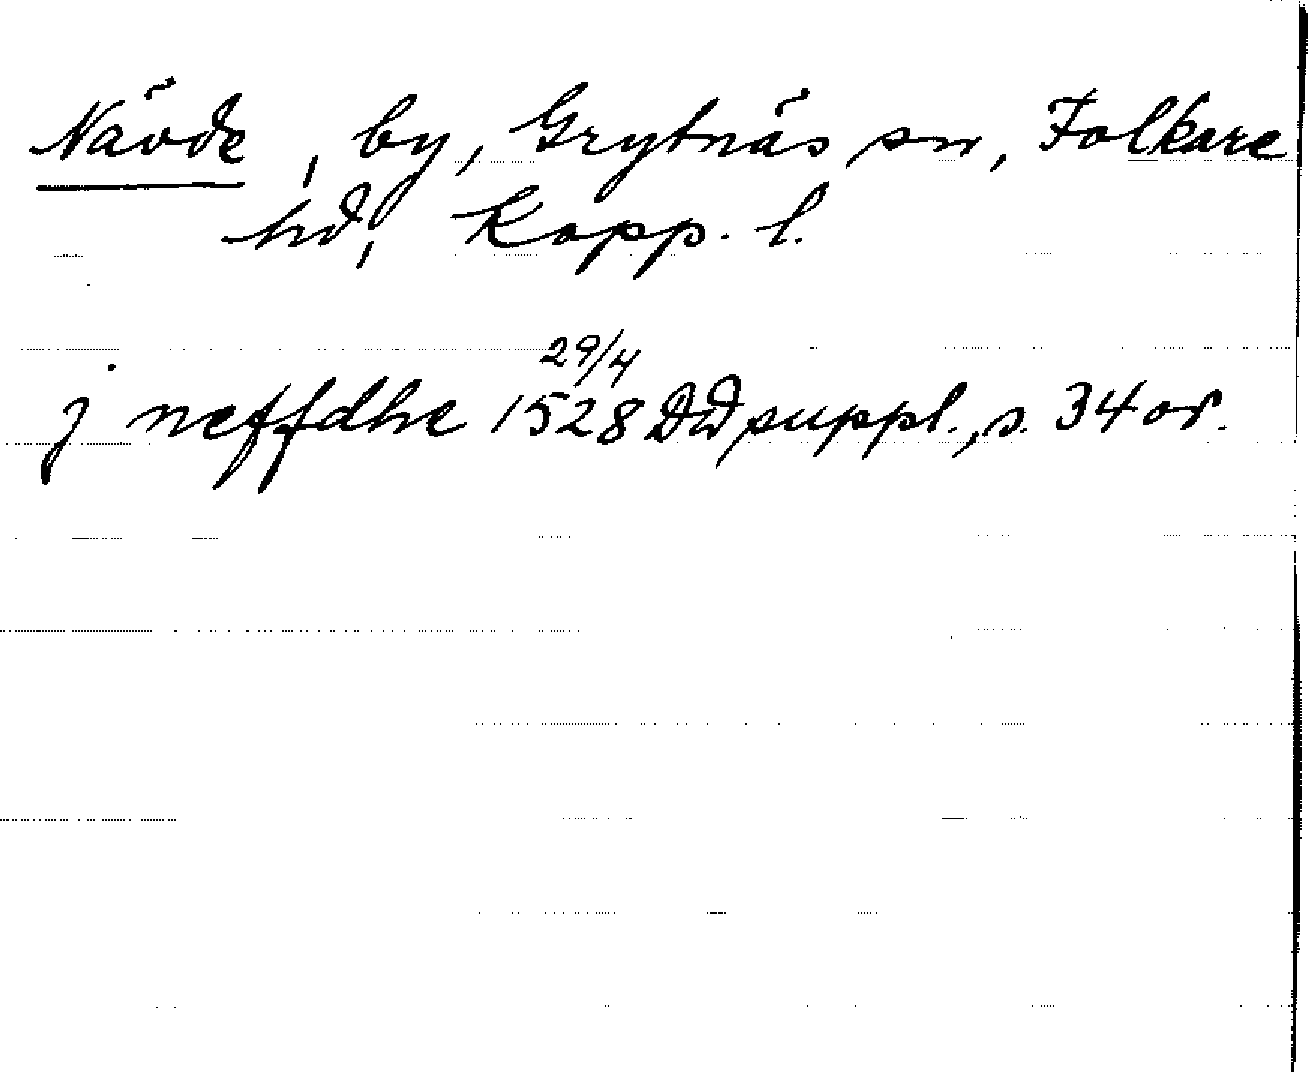 Nävde, by, Grytnäs sn, Folkare
hd, Kopp. l.
j neffdhe 29/4 1528 DD suppl., s. 34 or.